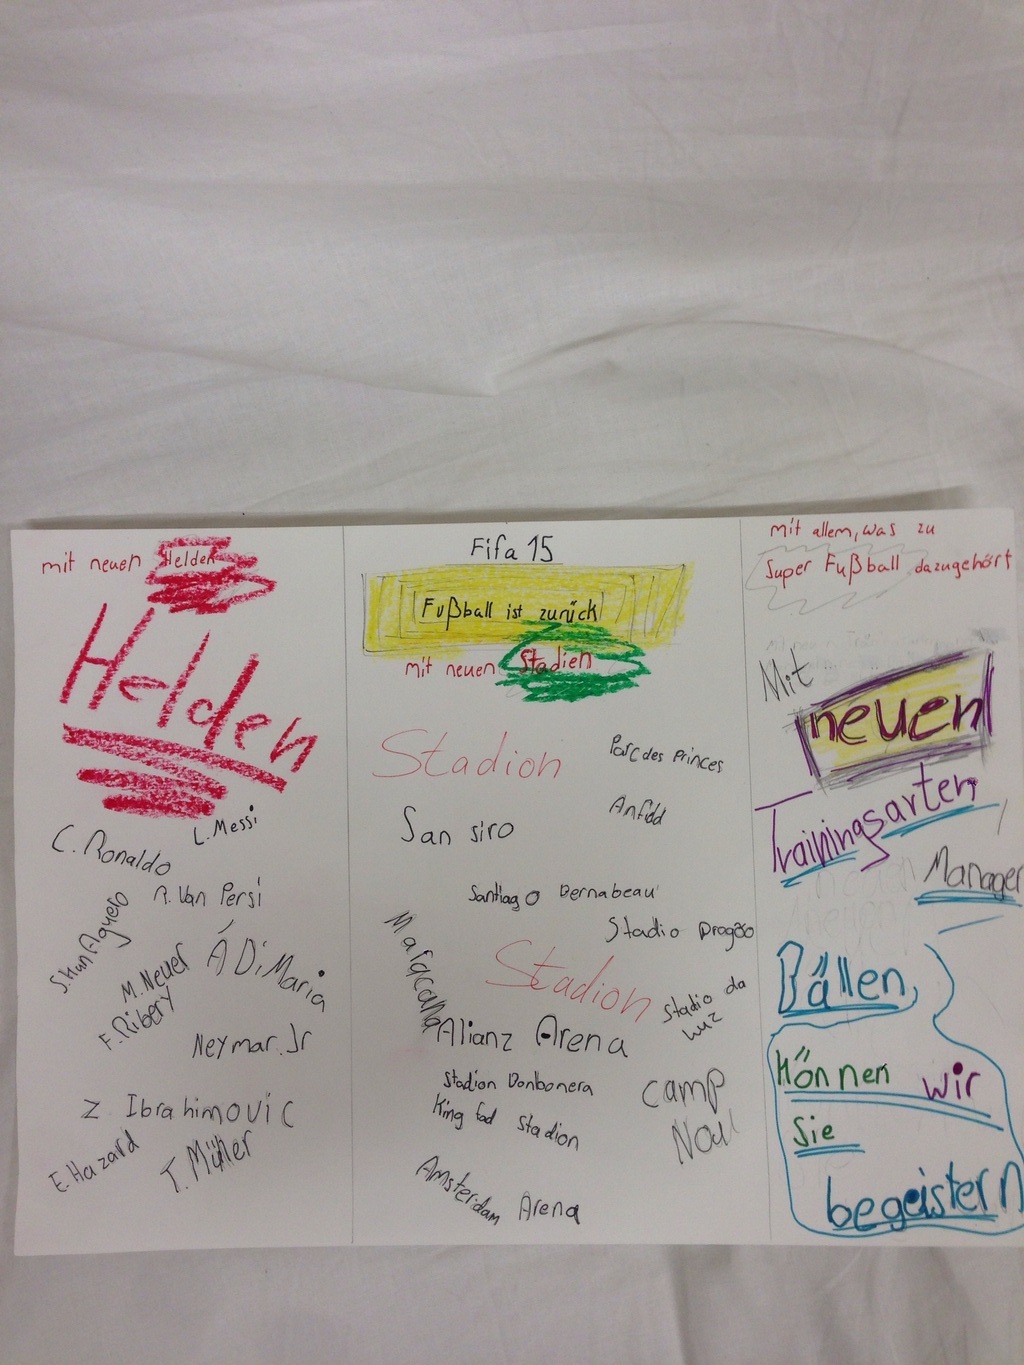 mit neuen Helden
Helden
C. Ronaldo
L. Messi
R. Van Persi
S. Kun Aguero
Á Di Maria
M. Neuer
F. Ribery
Neymar. Jr
Z Ibrahimovic
E. Hazard
T. Müller
Fifa 15
Fußball ist zurück
mit neuen Stadien
Stadion
Parc des Princes
Anfidd
San siro
Santiago Bernabeau
Stadio Dragão
Maracana
Stadion
Stadio da
Luz
Alianz Arena
Stadion Bonbonera
King fad Stadion
Camp
Nou
Amsterdam Arena
mit allem, was zu
Super Fußball dazugehört
Mit
neuen
Trainingsarten
Manager
Bällen,
Können wir
Sie
begeistern